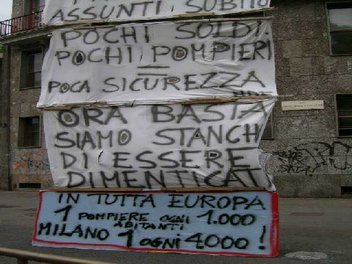 ASSUNTI SUBITO
POCHI SOLDI.
POCHI POMPIERI
=
POCA SICUREZZA
ORA BASTA
SIAMO STANCHI
DI ESSERE
DIMENTICATI
IN TUTTA EUROPA
1 POMPIERE OGNI 1.000
ABITANTI
MILANO 1 OGNI 4000!